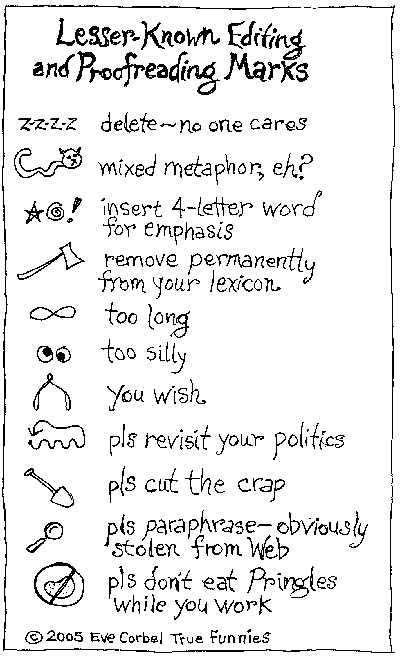 Lesser-Known Editing
and Proofreading Marks
Z-Z-Z-Z delete—no one cares
mixed metaphor, eh?
insert 4-letter word
for emphasis
remove permanently
from your lexicon
too long
too silly
you wish
pls revisit your politics
pls cut the crap
pls paraphrase—obviously
stolen from Web
pls don't eat Pringles
while you work
© 2005 Eve Corbel True Funnies